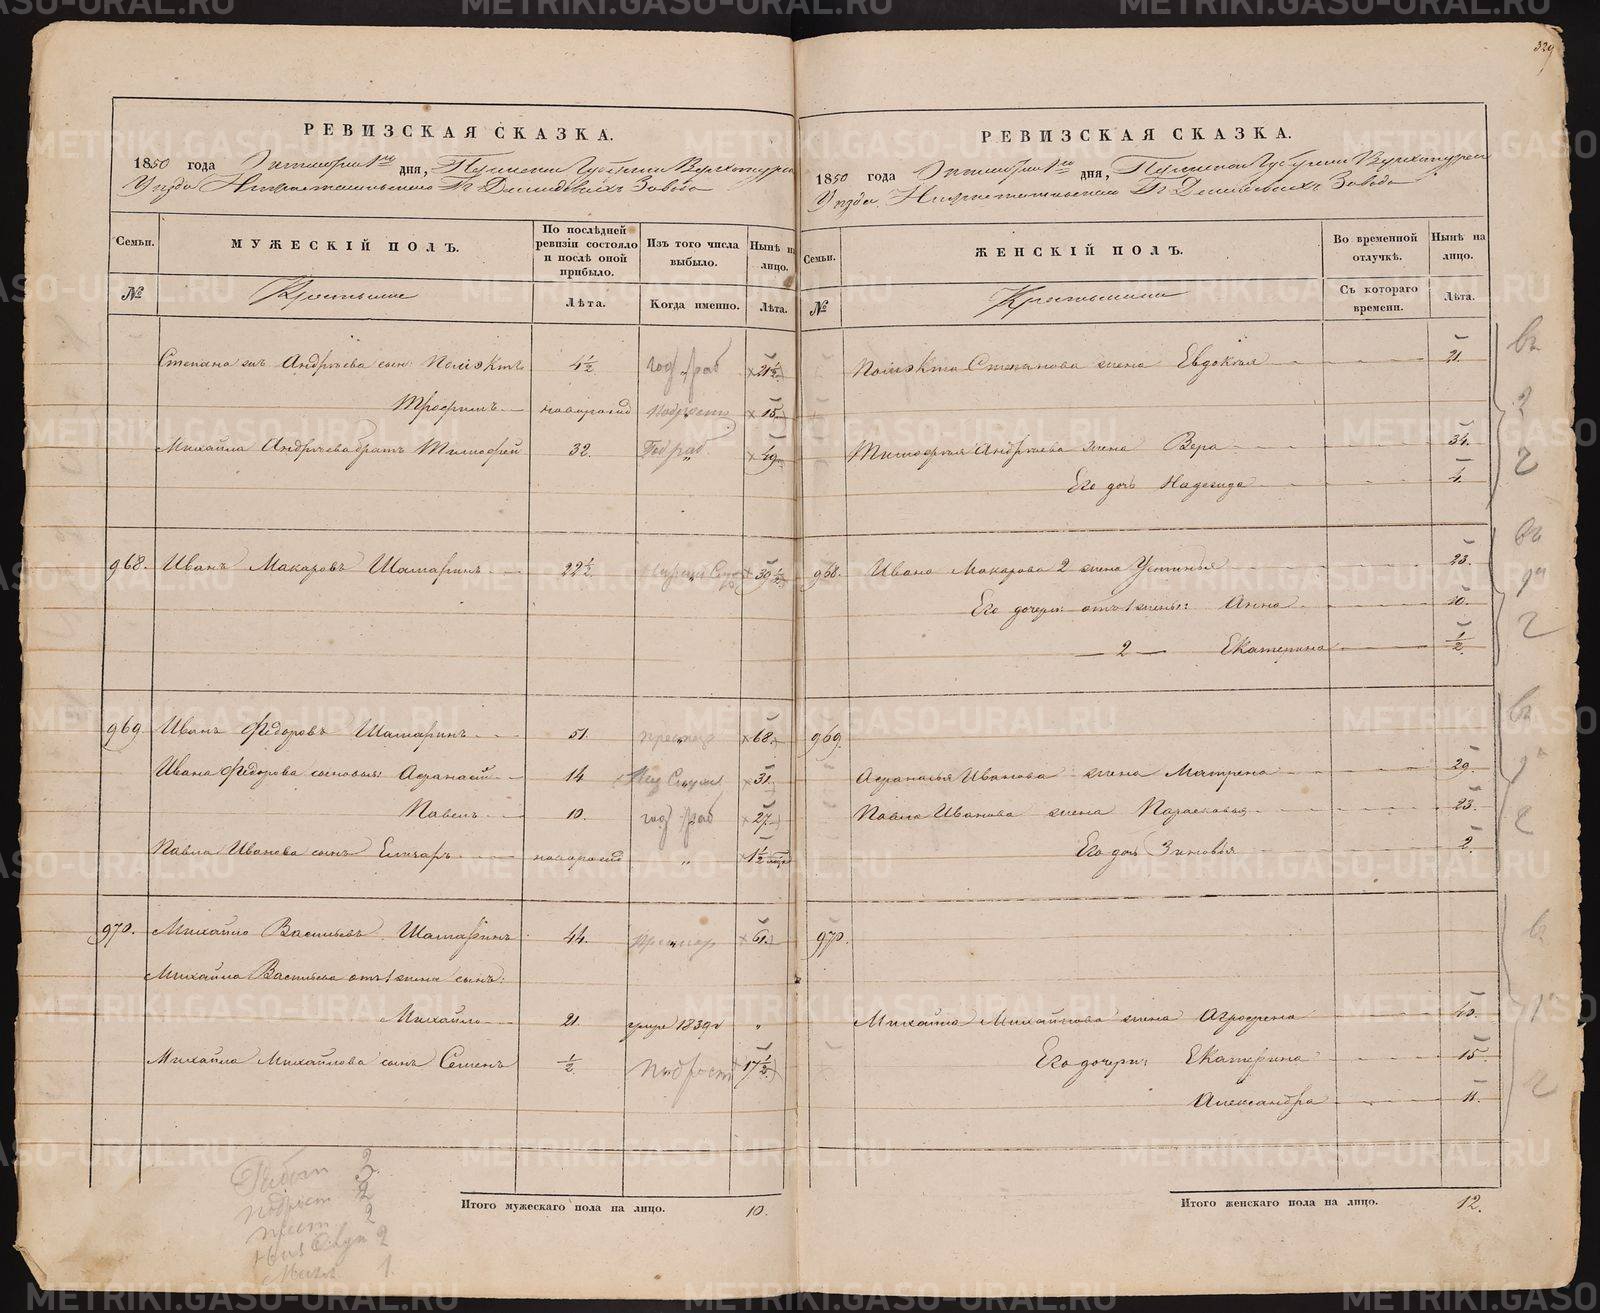 329
РЕВИЗСКАЯ СКАЗКА.
1850 года Октября 1го дня, Пермской Губернии Верхотурск
Уезда Нижнетагильского Гг Демидовыхъ Завода
Семьи. МУЖЕСКІЙ ПОЛЪ. По послѣдней ревизіи состояло и послѣ оной прибыло. Изъ того числа выбыло. Нынѣ на лицо.
№ Крестьяне Лѣта. Когда именно. Лѣта.
Степана Андреева сын Поліэктъ 4½ год раб 21½
Трофимъ новорожд подрост 15
Михайла Андреева братъ Тимофей 32. Год раб 49
968. Иванъ Макаровъ Шамаринъ 22½. 39½
969 Иванъ Федоровъ Шамаринъ 51. престар 68.
Ивана Федорова сыновья: Афанасій 14 31.
Павелъ 10. год раб 27
Павла Иванова сынъ Елизаръ новорожд „ 1½ мѣс
970. Михайло Васильевъ Шамаринъ 44. престар 61.
Михайла Васильева отъ 1 жены сынъ:
Михайло 21. умре 1839 г „
Михайла Михайлова сынъ Семенъ ½ подрост 17½
Итого мужескаго пола на лицо. 10.
Работ 3
подрост 2
прест 2
2
Мал 1
РЕВИЗСКАЯ СКАЗКА.
1850 года Октября 1го дня, Пермской Губернии Верхотурск
Уезда Нижнетагильского Гг Демидовыхъ Завода
Семьи. ЖЕНСКІЙ ПОЛЪ. Во временной отлучкѣ. Нынѣ на лицо.
№ Крестьянки Съ котораго времени. Лѣта.
Поліэкта Степанова жена Евдокья 21.
Тимофея Андреева жена Вера 34.
Его дочь Надежда 4.
968. Ивана Макарова 2 жена Устинья 23.
Его дочери: отъ 1 жены: Анна 10.
— 2 — Екатерина ½
969.
Афанасья Иванова жена Матрена 29.
Павла Иванова жена Парасковья 23.
Его дочь Зиновья 2.
970.
Михайла Михайлова жена Агрофена 40.
Его дочери: Екатерина 15.
Александра 11.
Итого женскаго пола на лицо. 12.
METRIKI.GASO-URAL.RU